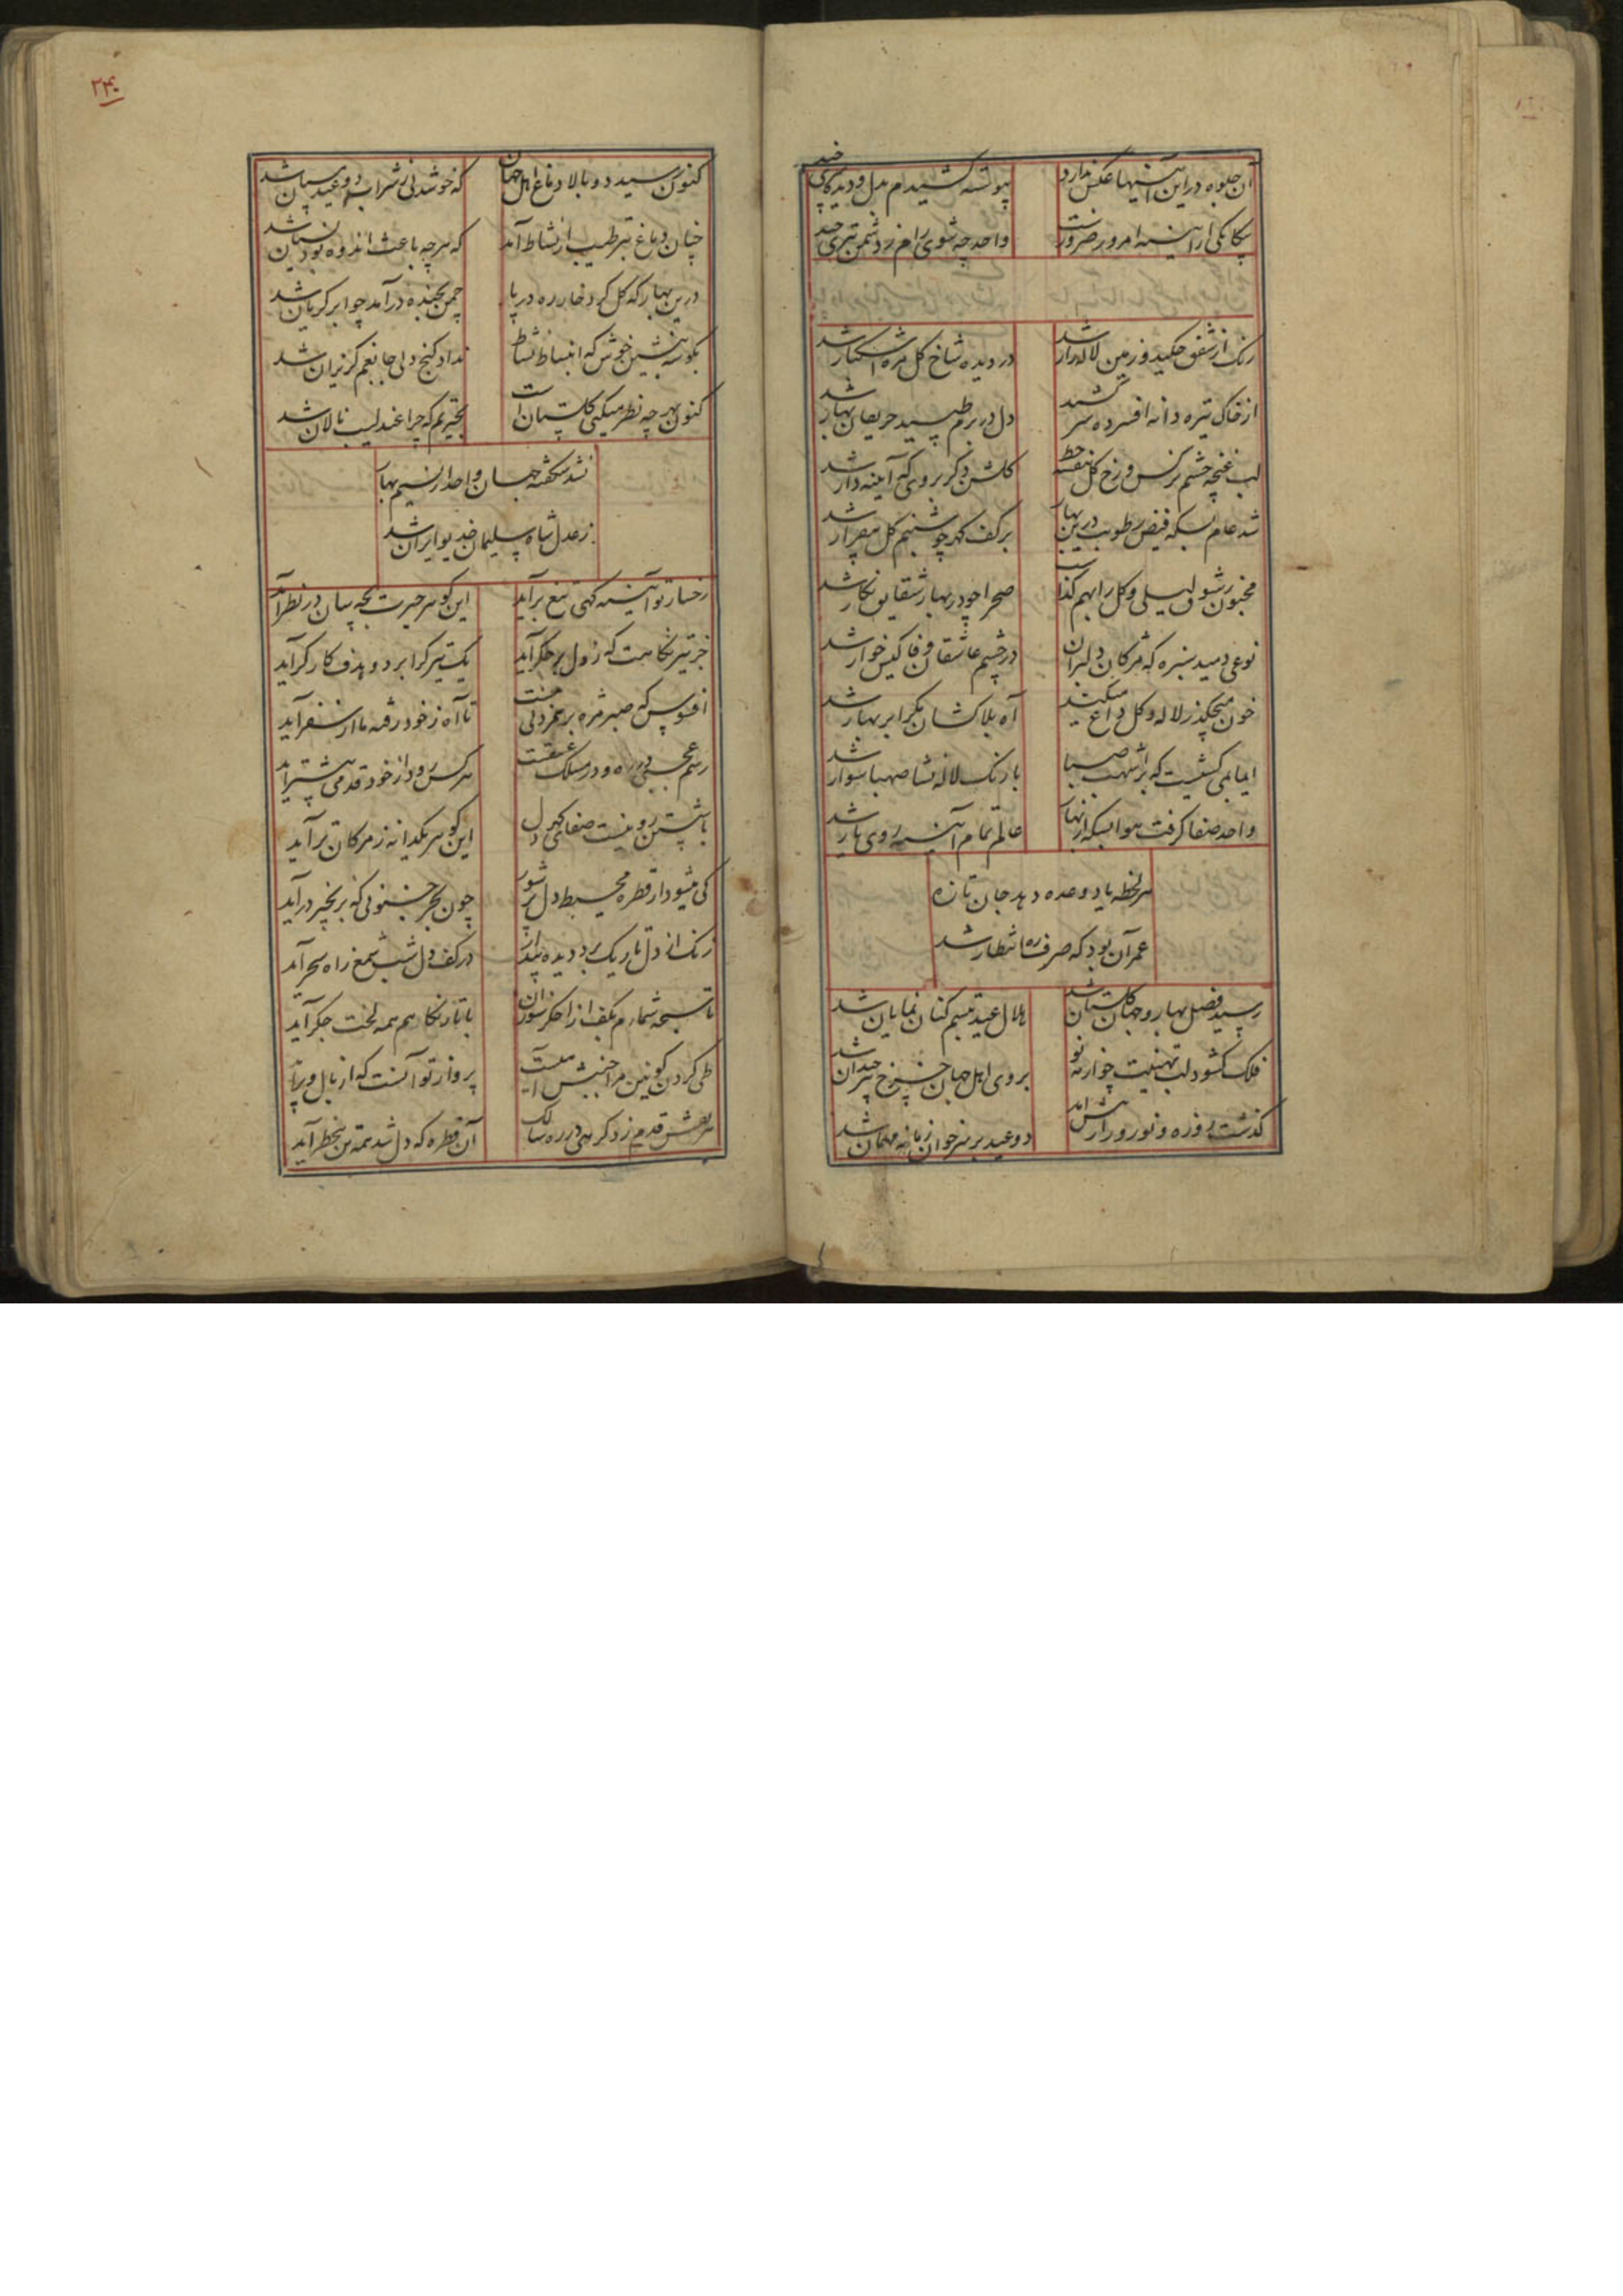 آن جلوه در این آئینها عکس ندارد پیوسته کشیدم بدل و دیده کای چند
بیگانگی ار آینه امروز ضرورست واحد چه شوی رام ز رد شمن تبری چند
رنک از شفق چکید و زمین لاله زار شد در دیده شاخ کل مژه اشکبار شد
از خاک تیره دانه افسرده سر کشید دل در برم طپید حریفان بهار شد
لب غنچه چشم نرکس و رخ کل بنفشه خط کلشن دکر بروی که آینه دار شد
شد عام بسکه فیض رطوبت درین بهار برکف کهر چو شبنم کل بیقرار شد
مجنون ز شوق لیلی و کل را بهم کذاشت صحرا چو در بهار شقایق نکار شد
نوعی دمید سبزه که مژکان دلبران در چشم عاشقان وفا کیش خوار شد
خون میچکد ز لاله و کل داغ میکشد آه بلاکشان مکر ابر بهار شد
ایام می کشیست که بر اشهب صبا با رنک لاله نشأ صهبا سوار شد
واحد صفا کرفت هوا بسکه از بهار عالم تمام آینه روی یار شد
هر لحظه یاد وعده دهد جان تازه
عمر آن بود که صرف ره انتظار شد
رسید فصل بهار و جهان کلستان شد هلال عید تبسم کنان نمایان شد
فلک کشود لب تهنیت چو از مه نو بروی اهل جهان چرخ پیر خندان شد
کذشت روزه و نوروز از پیش آمد دو عید بر سر خوان زمانه مهمان شد
۲۴۰
کنون رسید دو بالا دماغ اهل جهان که خوشدلی شراب دو عید سامان شد
چنان دماغ تر طیب از نشاط آمد که هر چه باعث اندوه بود نسیان شد
درین بهار که کل کرد خار ره در پا چمن بخنده در آمد چو ابر کریان شد
بکوشه بنشین خوش که انبساط نشاط نداد کنج دلی جا بغم کریزان شد
کنون بهر چه نظر میکنی کلستان است بحیرتم که چرا عندلیب نالان شد
نشد شکفته جهان واحد از نسیم بهار
ز عدل شاه سلیمان خدیو ایران شد
رخسار تو آئینه کهی تیغ برآید این کوهر حیرت بچه سان در نظر آید
جز تیر نکاهت که ز دل بر جکر آید یک تیر کرا بر دو هدف کارکر آید
افسوس که صبر مژه بر همزدنی نیست تا آه ز خود رفته ما از سفر آید
رسم عجبی در ره و در مسلک عشقست هر کس رود از خود قدمی پیشتر آید
با شستن رو نیست صفای کهر دل این کوهر یکدانه ز مژکان تر آید
کی میشود از قطره محیط دل پر شور چون بحر جنونی که بزنجیر درآید
زنک از دل تاریک برد دیده بیدار در کف دل شب شمع ز راه سحر آید
تا سبحه شمارم بکف از اخکر سوزان با تار نکاهم همه لخت جکر آید
طی کردن کونین مرا جنبش آهیست پرواز تو آنست که از بال و پر آید
لغزش قدم زد کرهی در ره سالک آن قطره که دل شد همه تن بخطر آید